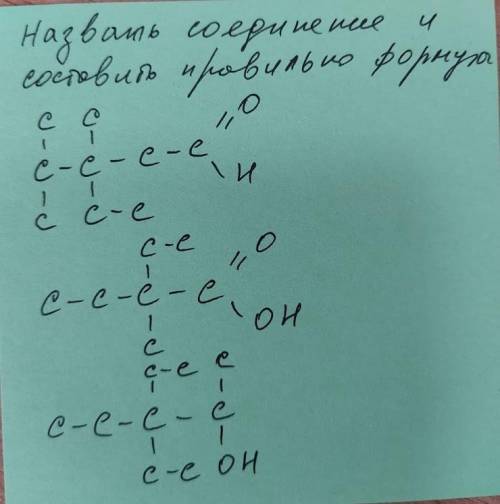 Назвать соединение и
составить правильно формулы
C C O
C - C - C - C
H
C C - C
C - C O
C - C - C - C
OH
C
C - C C
C - C - C - C
C - C OH